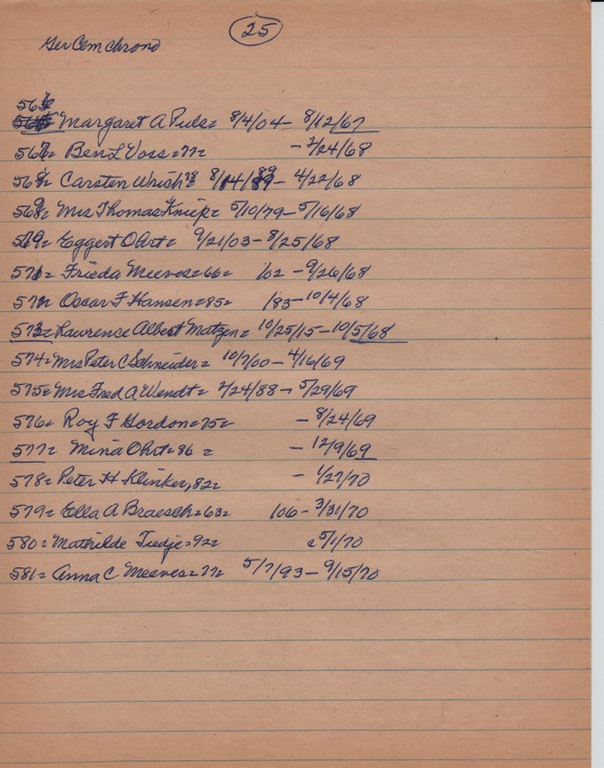 25
Ger Cem chrono
566= Margaret A Puls= 8/4/04 - 8/12/67
567= Ben L Voss=77= - 2/24/68
568= Carsten 78 8/14/89 - 4/22/68
569= Mrs Thomas Kniep= 5/10/79 - 5/16/68
569= Eggert Ohrt= 9/21/03 - 8/25/68
571= Frieda Meeves=66= /02 - 9/26/68
572= Oscar F Hansen=85= /83 - 10/4/68
573= Lawrence Albert Matzen= 10/25/15 - 10/5/68
574= Mrs Peter C Schneider= 10/7/00 - 4/16/69
575= Mrs Fred A Wendt= 2/24/88 - 5/29/69
576= Roy F Gordon=75= - 8/24/69
577= Mina Ohrt=86= - 12/9/69
578= Peter H Klinker, 82= - 1/27/70
579= Ella A Braesch=63= /06 - 3/31/70
580= Mathilde Tiedje=92= c 5/1/70
581= Anna C Meeves=77= 5/7/93 - 9/15/70